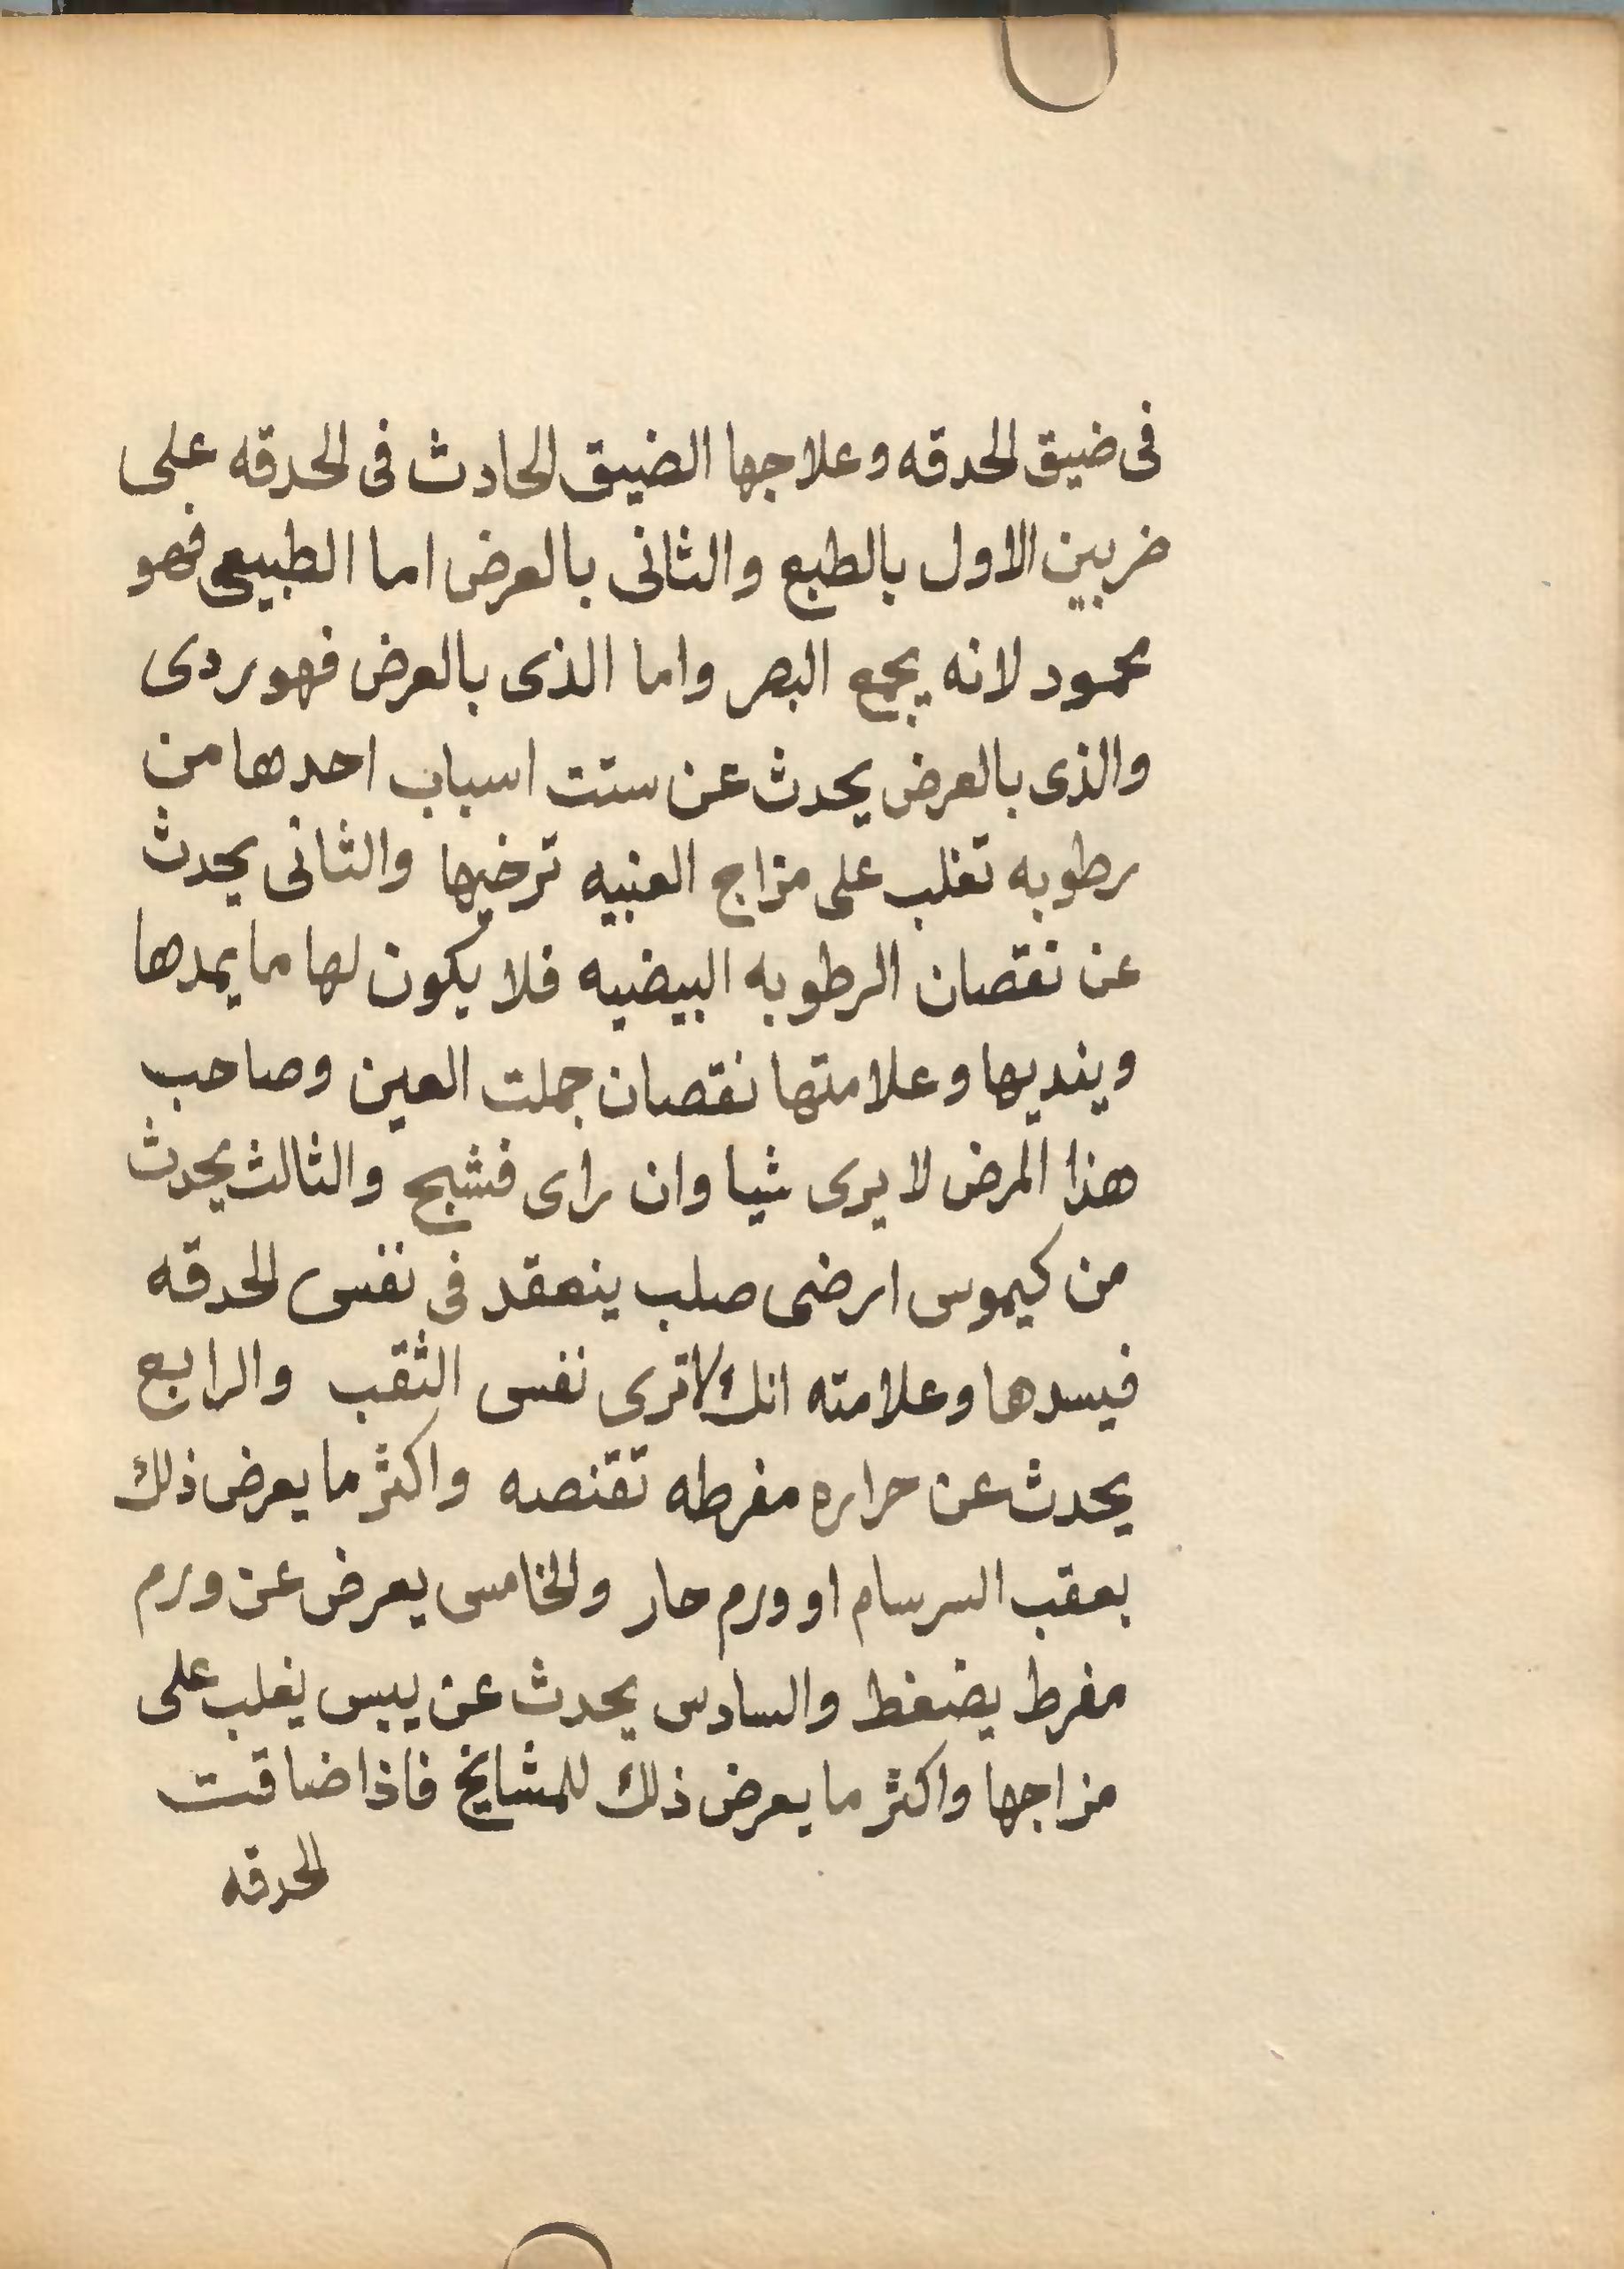 فى ضيق الحدقه وعلاجها الضيق الحادث فى الحدقه على
ضربين الاول بالطبع والثانى بالعرض اما الطبيعى فهو
محمود لانه يجمع البصر واما الذى بالعرض فهو ردى
والذى بالعرض يحدث عن ستت اسباب احدها من
رطوبه تغلب على مزاج العنبيه ترخيها والثانى يحدث
عن نقصان الرطوبه البيضيه فلا يكون لها ما يمدها
وينديها وعلامتها نقصان جملت العين وصاحب
هذا المرض لا يرى شيا وان راى فشبح والثالث يحدث
من كيموس ارضى صلب ينعقد فى نفس الحدقه
فيسدها وعلامته انك لا ترى نفس الثقب والرابع
يحدث عن حراره مفرطه تقنصه واكثر ما يعرض ذلك
بعقب السرسام او ورم حار والخامس يعرض عن ورم
مفرط يضغط والسادس يحدث عن يبس يغلب على
مزاجها واكثر ما يعرض ذلك للمشايخ فاذا ضاقت
الحدقه